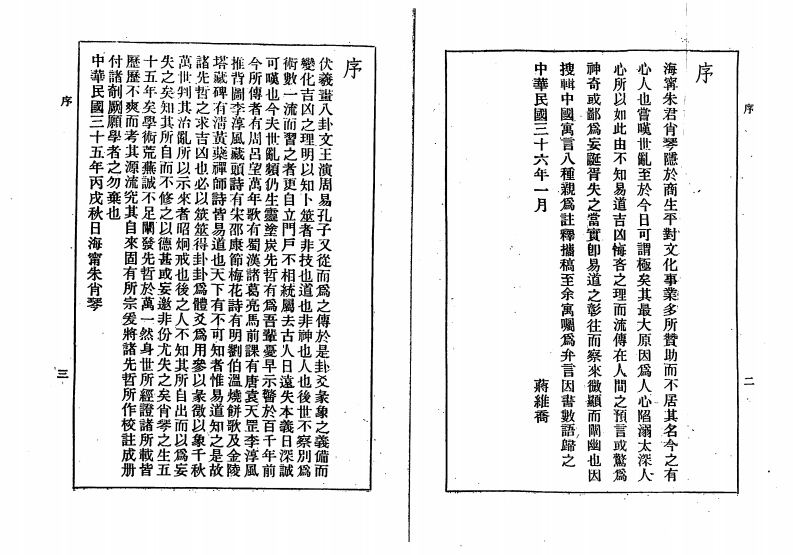 序
二
序
海甯朱君肖琴隱於商生平對文化事業多所贊助而不居其名今之有
心人也嘗嘆世亂至於今日可謂極矣其最大原因爲人心陷溺太深人
心所以如此由不知易道吉凶悔吝之理而流傳在人間之預言或驚爲
神奇或鄙爲妄誕胥失之當實卽易道之彰往而察來微顯而闡幽也因
搜輯中國寓言八種親爲註釋攜稿至余寓囑爲弁言因書數語歸之
中華民國三十六年一月 蔣維喬
序
三
序
伏羲畫八卦文王演周易孔子又從而爲之傳於是卦爻彖象之義備而
變化吉凶之理明以知卜筮者非技也道也非神也人也後世不察別爲
術數一流而習之者更自立門戶不相統屬去古人日遠失本義日深誠
可嘆也今夫世亂頻仍生靈塗炭先哲有爲吾輩憂早示警於百千年前
今所傳者有周呂望萬年歌有蜀漢諸葛亮馬前課有唐袁天罡李淳風
推背圖李淳風藏頭詩有宋邵康節梅花詩有明劉伯溫燒餅歌及金陵
塔藏碑有淸黃蘗禪師詩皆易道也天下有不可知者惟易道知之是故
諸先哲之求吉凶也必以筮筮得卦卦爲體爻爲用參以彖徵以象千秋
萬世判其治亂所以示來者昭炯戒也後之人不知其所自出而以爲妄
失之矣知其所自而不修之以德甚或妄邀非份尤失之矣肖琴之生五
十五年矣學術荒蕪誠不足闡發先哲於萬一然身世所經證諸所載皆
歷歷不爽而考其源流究其自來固有所宗爰將諸先哲所作校註成册
付諸剞劂願學者之勿棄也
中華民國三十五年丙戌秋日海甯朱肖琴